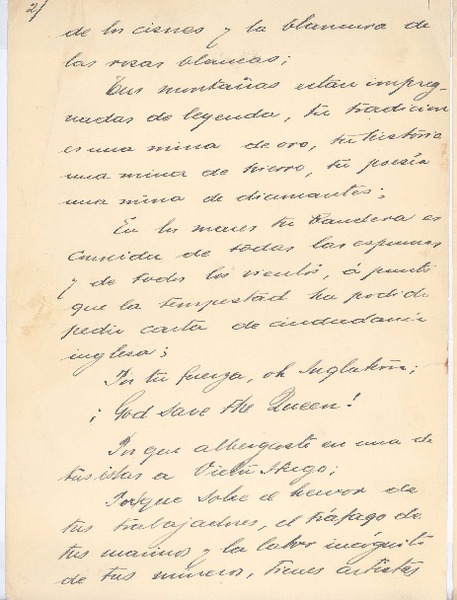 2/
de los cisnes y la blancura de
las rosas blancas;
Tus montañas estan impreg-
nadas de leyenda, tu tradicion
es una mina de oro, tu historia
una mina de hierro, tu poesía
una mina de diamantes;
En los mares tu bandera es
conocida de todas las espumas
y de todos los vientos, á punto
que la tempestad ha podido
pedir carta de ciudadanía
inglesa;
Por tu fuerza, oh Inglaterra;
¡God save the Queen!
Porque albergaste en una de
tus islas a Victor Hugo;
Porque sobre el hervor de
tus trabajadores, el tráfago de
tus marinos y la labor incógnita
de tus mineros, tienes artistas